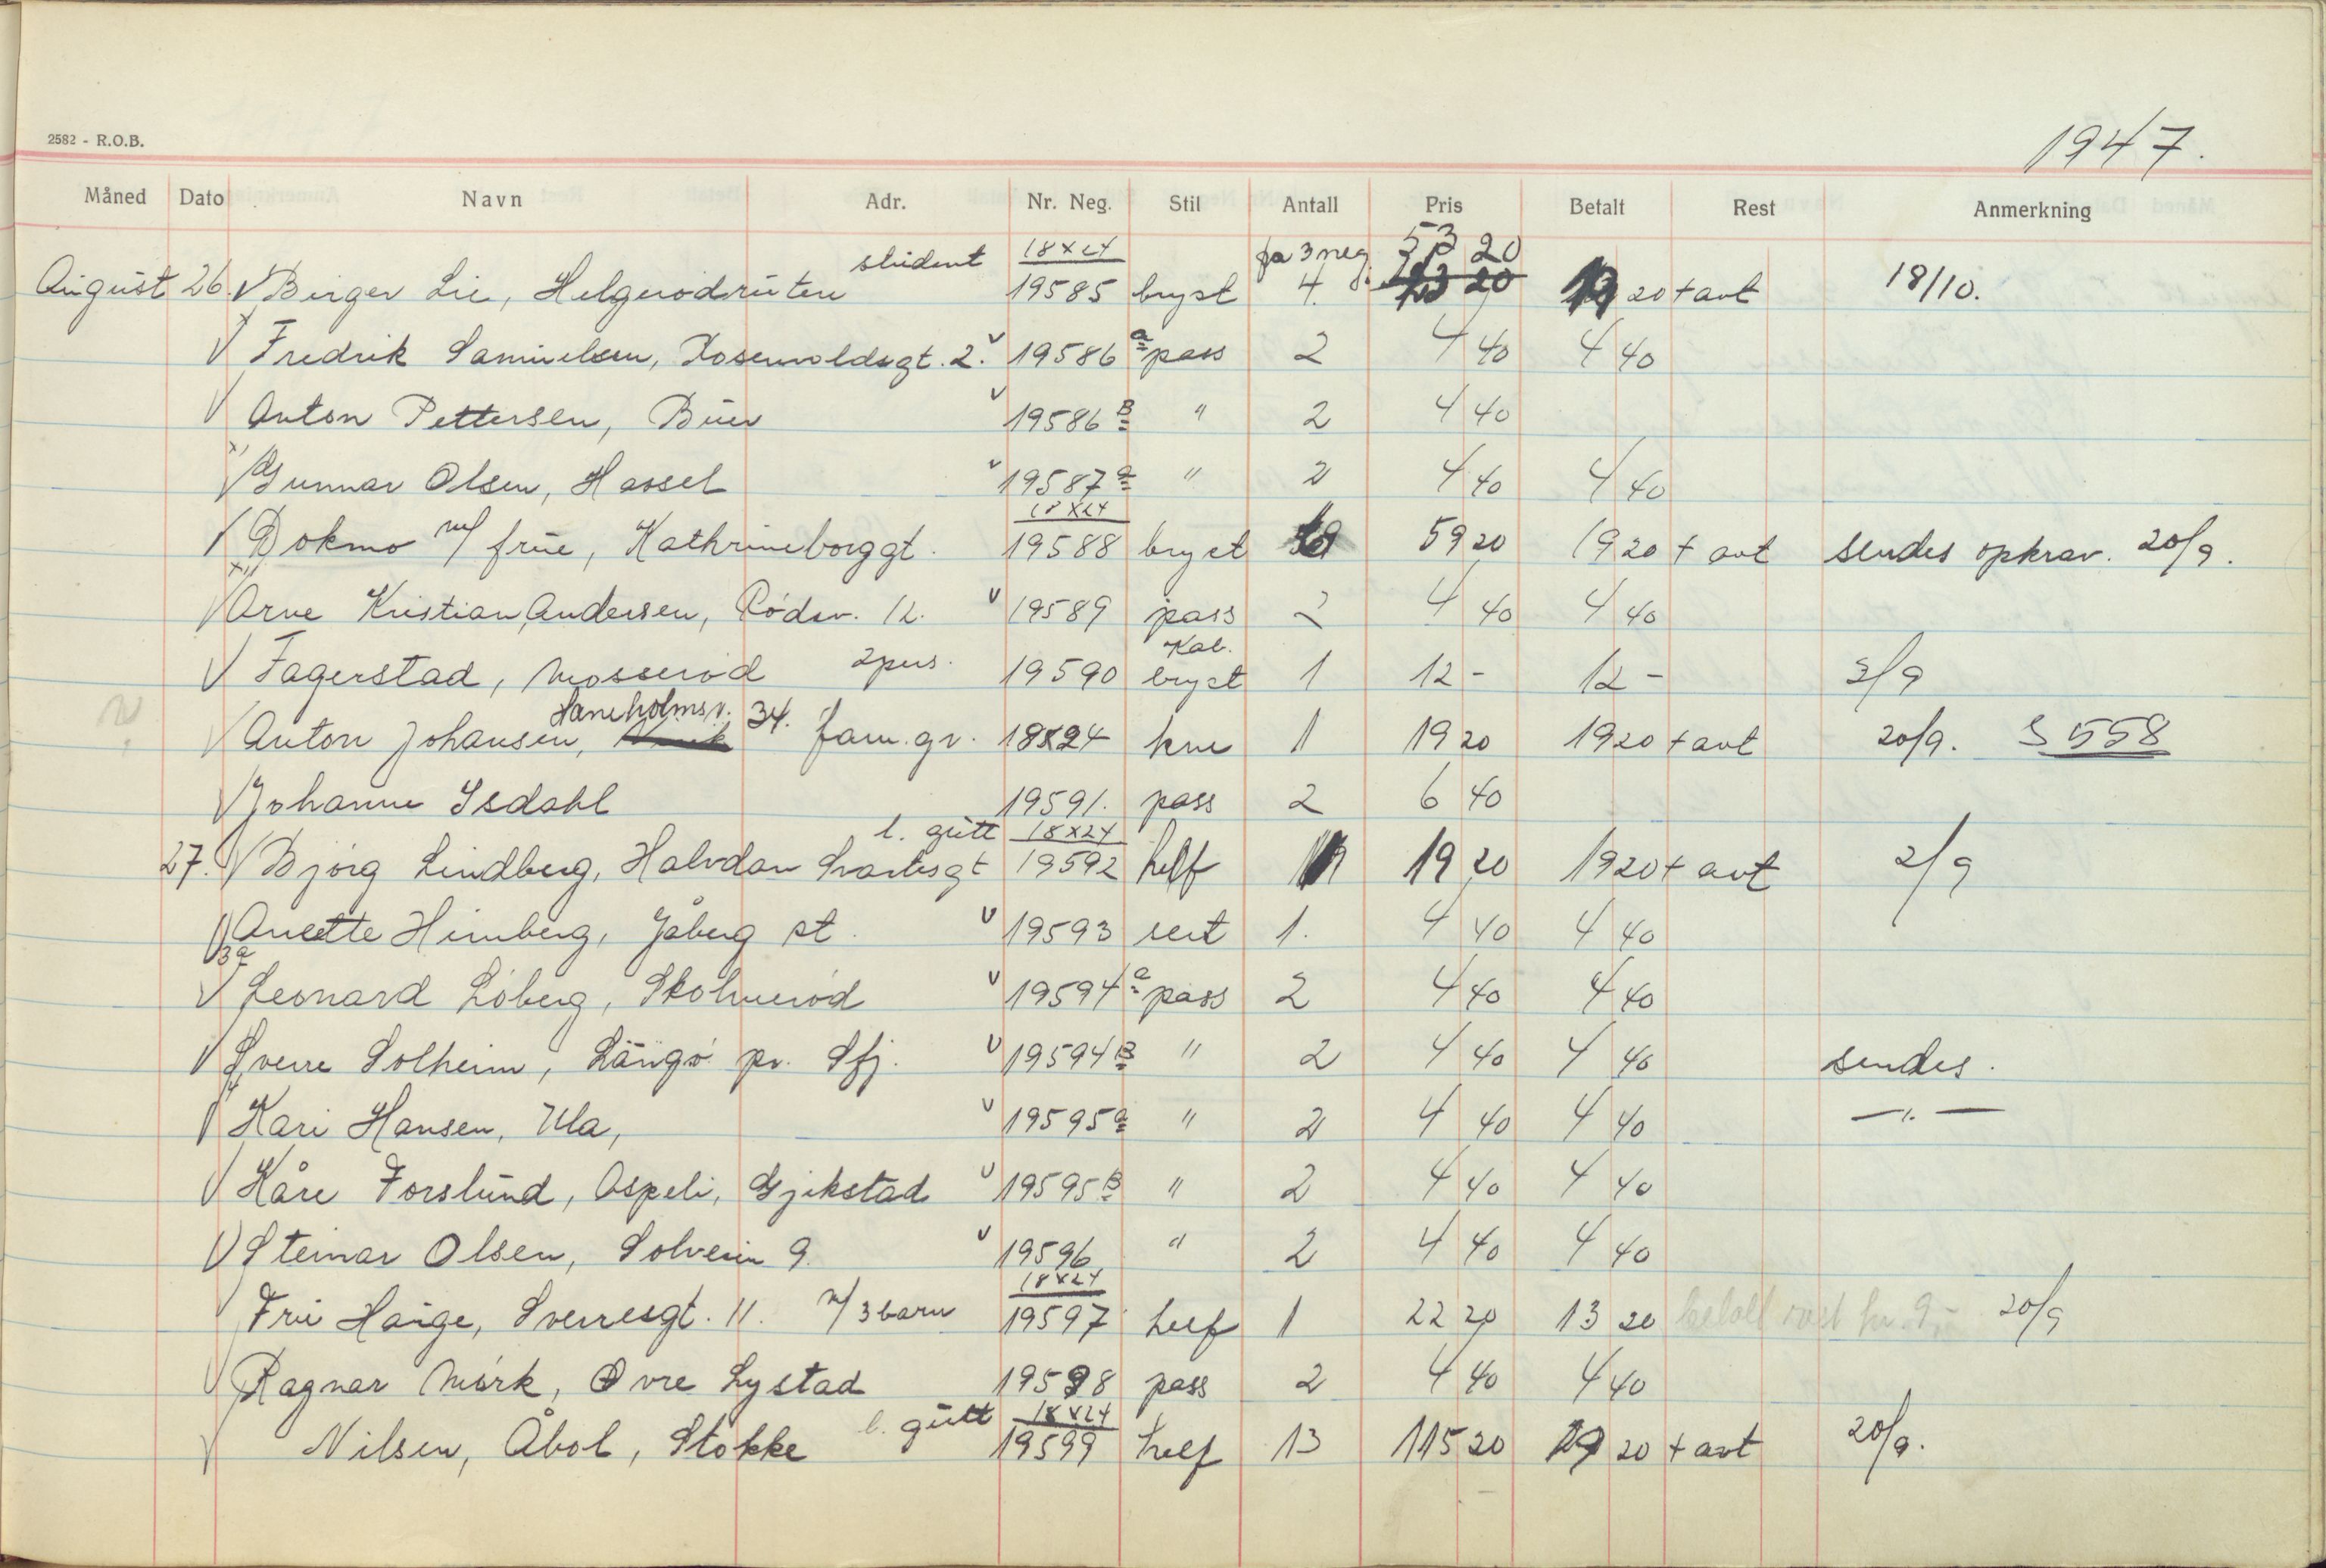 2582 - R.O.B.
1947.
Måned Dato Navn Adr. Nr. Neg. Stil Antall Pris Betalt Rest Anmerkning
student 18x24 fra 3 neg. 53 20
August 26. V Birger Lie, Helgerødruten 19585 bryst 4 20 + avt 18/10.
V Fredrik Samuelsen, Rosenvoldsgt. 2. v 19586 a pass 2 4 40 4 40
V Anton Pettersen, Buer v 19586 B " 2 4 40
V Gunnar Olsen, Hassel v 19587 a " 2 4 40 4 40
18x24
V Dokmo m/ frue, Kathrineborggt. 19588 bryst 59 20 19 20 + avt sendes opkrav. 20/9.
V Arne Kristian Andersen, Rödsv. 12. v 19589 pass 2 4 40 4 40
Kab.
V Fagerstad, Mosserød 2 pers. 19590 bryst 1 12 - 12 - 3/9
Haneholmsv. 34.
V Anton Johansen, fam. gr. 18x24 kne 1 19 20 19 20 + avt 20/9. S 558
V Johanne Isdahl 19591. pass 2 6 40
l. gutt 18x24
27. V Bjørg Lindberg, Halvdan Svartesgt 19592 helf 19 20 19 20 + avt 2/9
V Anette Himberg, Jåberg st. v 19593 rest 1. 4 40 4 40
V Leonard Löberg, Skolmerød v 19594 a pass 2 4 40 4 40
V Sverre Solheim, Langö pr. Sfj. v 19594 B " 2 4 40 4 40 sendes.
V Kari Hansen, Ula, v 19595 a " 2 4 40 4 40 — " —
V Kåre Forslund, Aspeli, Gjekstad v 19595 B " 2 4 40 4 40
V Steinar Olsen, Solveien 9. v 19596 " 2 4 40 4 40
18x24
V Fru Hauge, Sverresgt. 11. m/ 3 barn 19597 helf 1 22 20 13 20 betalt rest kr. 9,- 20/9
V Ragnar Mørk, Øvre Lystad 19598 pass 2 4 40 4 40
l. gutt 18x24
V Nilsen, Åbol, Stokke 19599 helf 13 115 20 19 20 + avt 20/9.